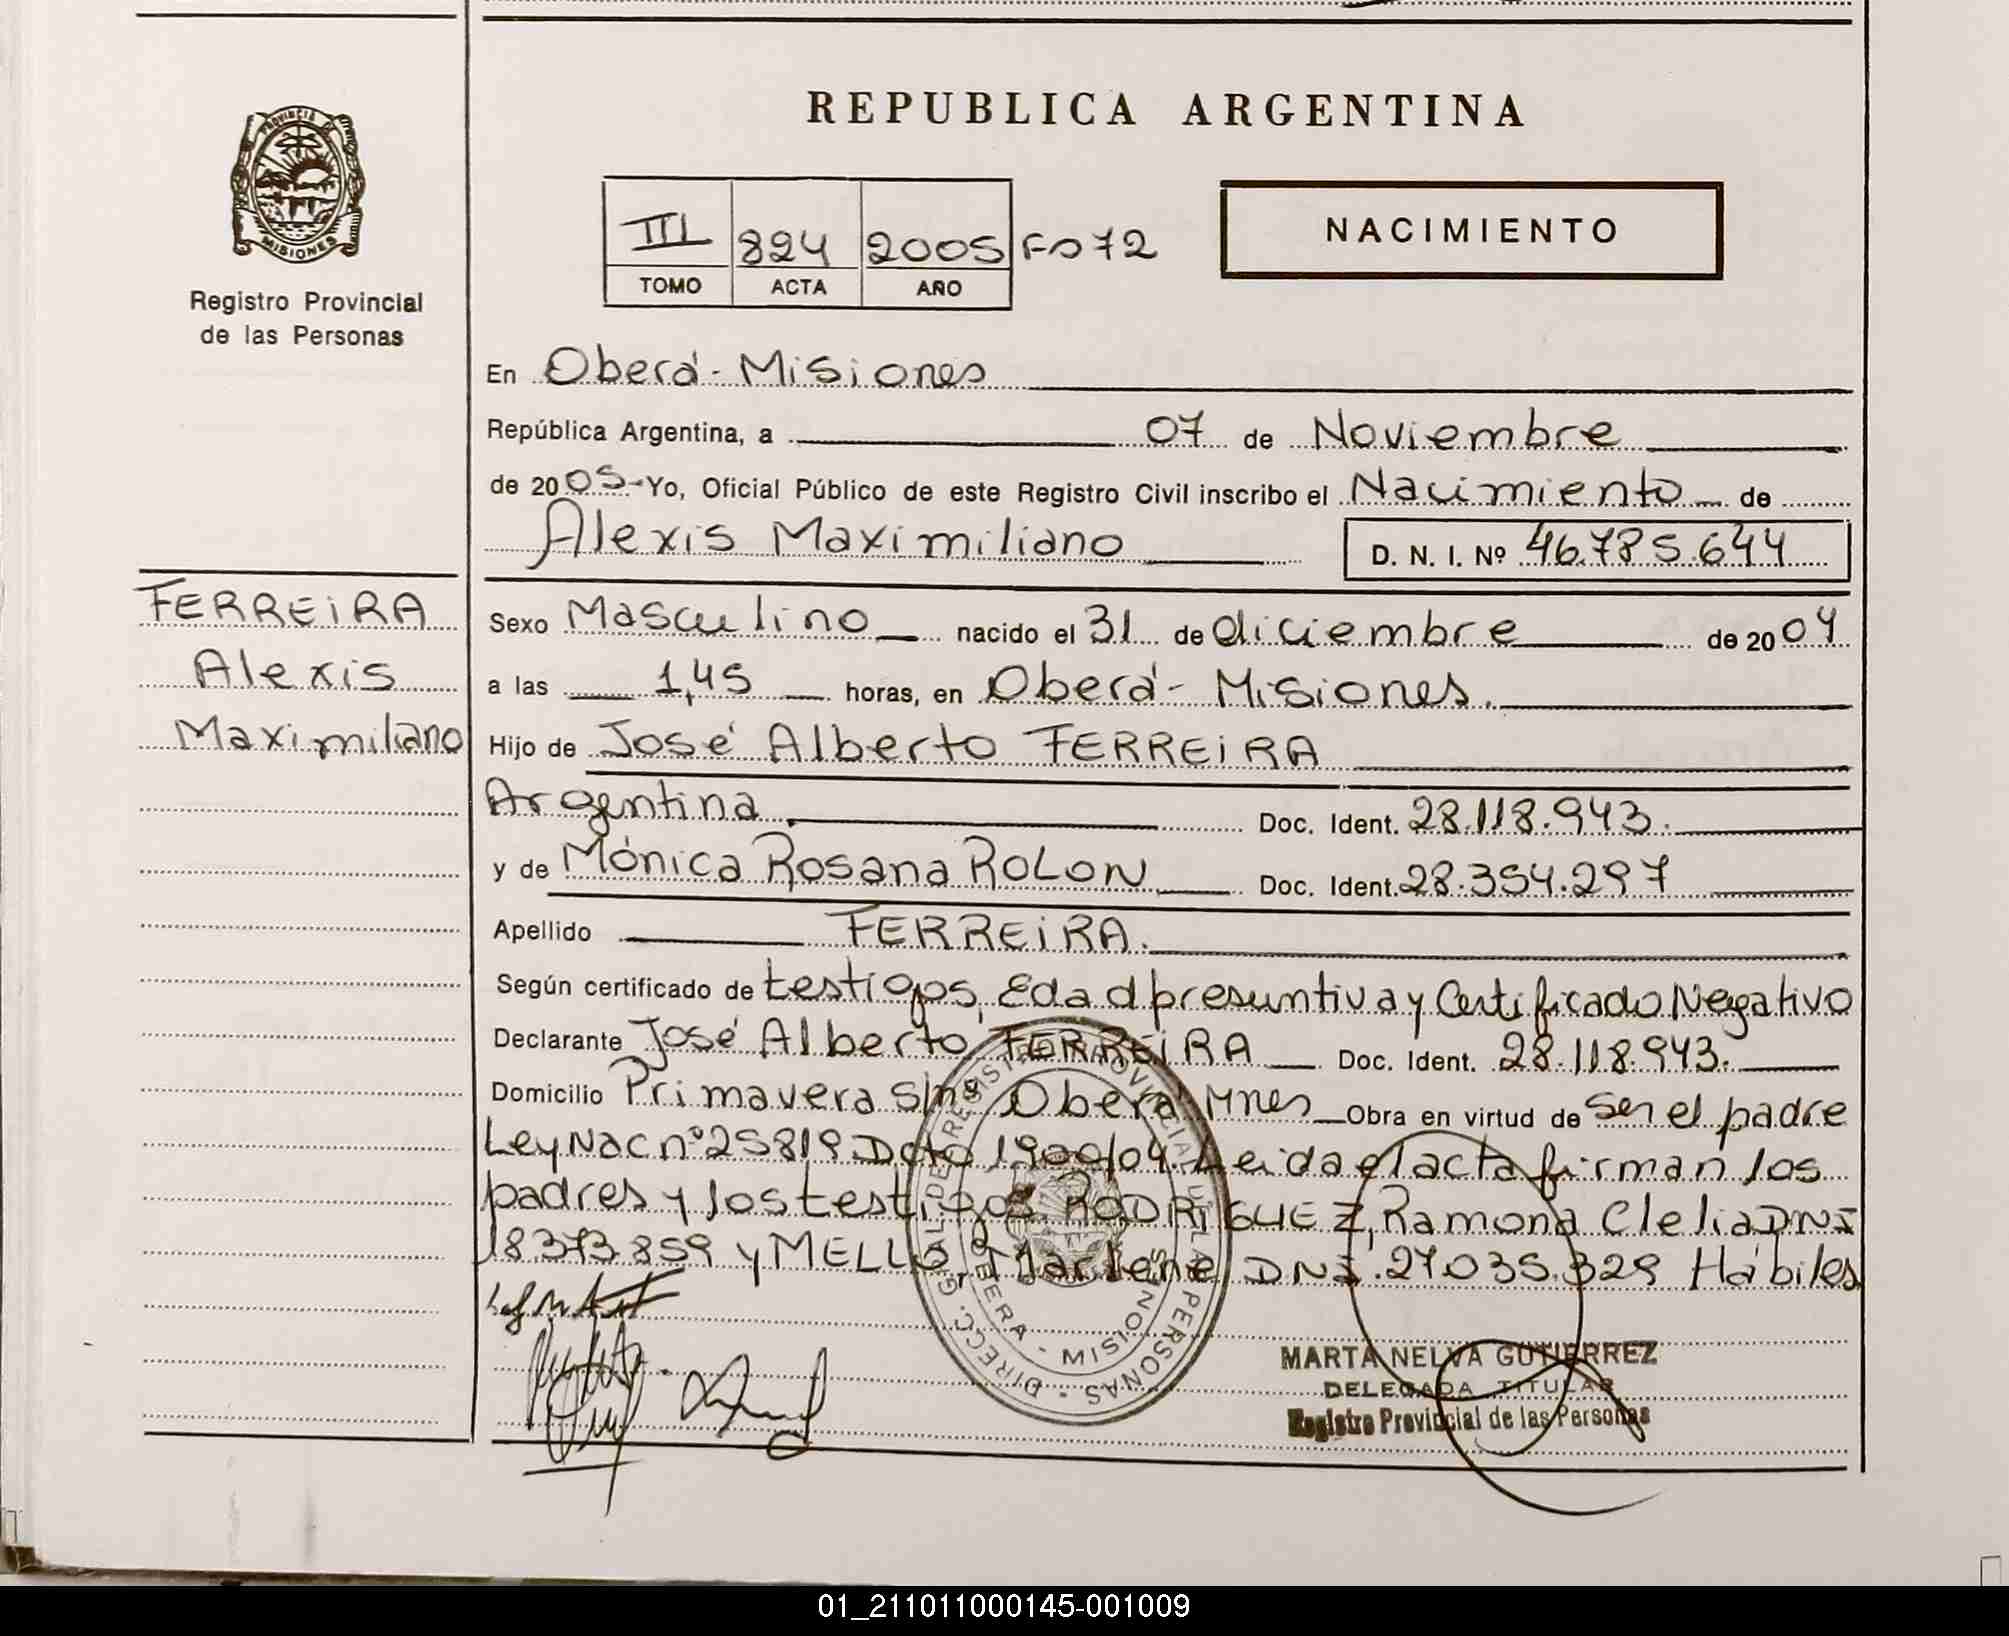 REPUBLICA ARGENTINA
PROVINCIA DE
MISIONES
Registro Provincial
de las Personas
III 824 2005 Fo 72
TOMO ACTA AÑO
NACIMIENTO
En Oberá - Misiones
República Argentina, a 07 de Noviembre
de 2005 - Yo, Oficial Público de este Registro Civil inscribo el Nacimiento de
Alexis Maximiliano D. N. I. Nº 46.785.644
FERREiRA
Alexis
Maximiliano
Sexo Masculino nacido el 31 de diciembre de 2004
a las 1,45 horas, en Oberá - Misiones.
Hijo de José Alberto FERREiRA
Argentina Doc. Ident. 28.118.943.
y de Mónica Rosana ROLON Doc. Ident. 28.354.297
Apellido FERREiRA.
Según certificado de testigos, Edad presuntiva y Certificado Negativo
Declarante José Alberto FERREiRA Doc. Ident. 28.118.943.
Domicilio Primavera s/nº Oberá Mnes Obra en virtud de ser el padre
Ley Nac nº 25819 Dcto 1900/04. Leida el acta firman los
padres y los testigos RODRIGUEZ, Ramona Clelia DNI
18.373.859 y MELLO, Marlene DNI. 27.035.329 Hábiles
DIRECC. GRAL DE REGISTRO PROVINCIAL DE LAS PERSONAS
OBERA - MISIONES
MARTA NELVA GUTIERREZ
DELEGADA TITULAR
Registro Provincial de las Personas
01_211011000145-001009